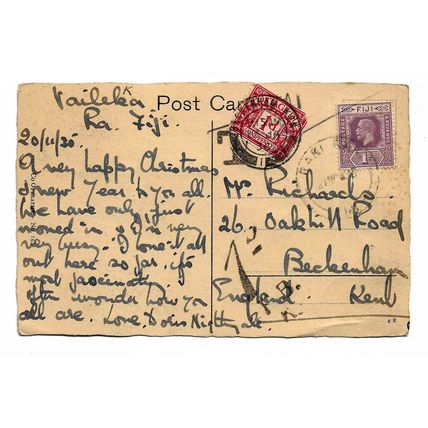 Vaileka
Post Card
Ra. Fiji.
20/11/25
A very happy Christmas
& new Year to you all.
We have only just
moved in & I'm very
very busy. I love it all
out here so far. it's
most fascinating
often wonder how you
all are. Love. Doris Nightingale.
Mrs Richards.
26, Oakhill Road
Beckenham
England. Kent
FIJI
POSTAGE
1D